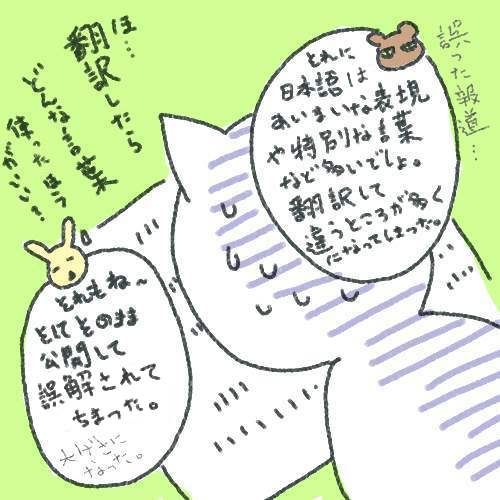 誤った報道…
それに
日本語は
あいまいな表現
や特別な言葉
など多いでしょ。
翻訳して
違うところが多く
になってしまった。
ほ…
翻訳したら
どんな言葉
使ったほう
がいい?
それもね～
そしてそのまま
公開して
誤解されて
ちまった。
大げさに
なった。